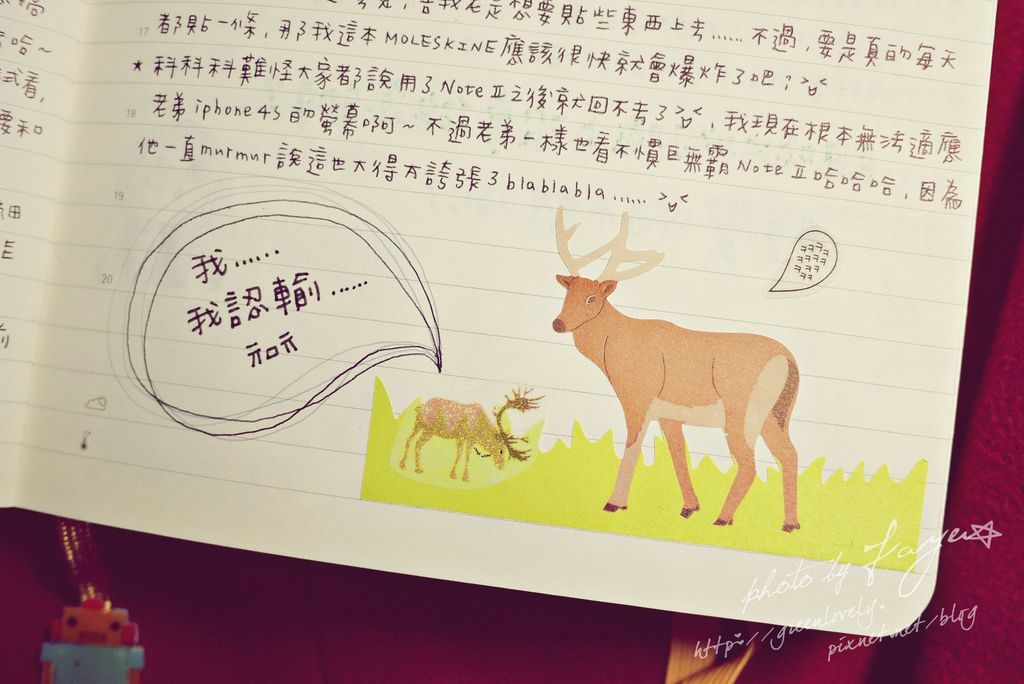 想要貼些東西上去......不過,要是真的每天
17 都貼一條,那我這本MOLESKINE應該很快就會爆炸了吧?
★ 科科科難怪大家都說用了Note II之後就回不去了,我現在根本無法適應
18 老弟iphone4s的螢幕啊~不過老弟一樣也看不慣巨無霸Note II哈哈哈,因為
他一直murmur說這也太得太誇張了blablabla......
19
20
我......
我認輸......
ㅋㅋㅋ
ㅋㅋㅋㅋ
ㅋㅋㅋ
ㅋㅋ
photo by
http://greenlovely.
pixnet.net/blog